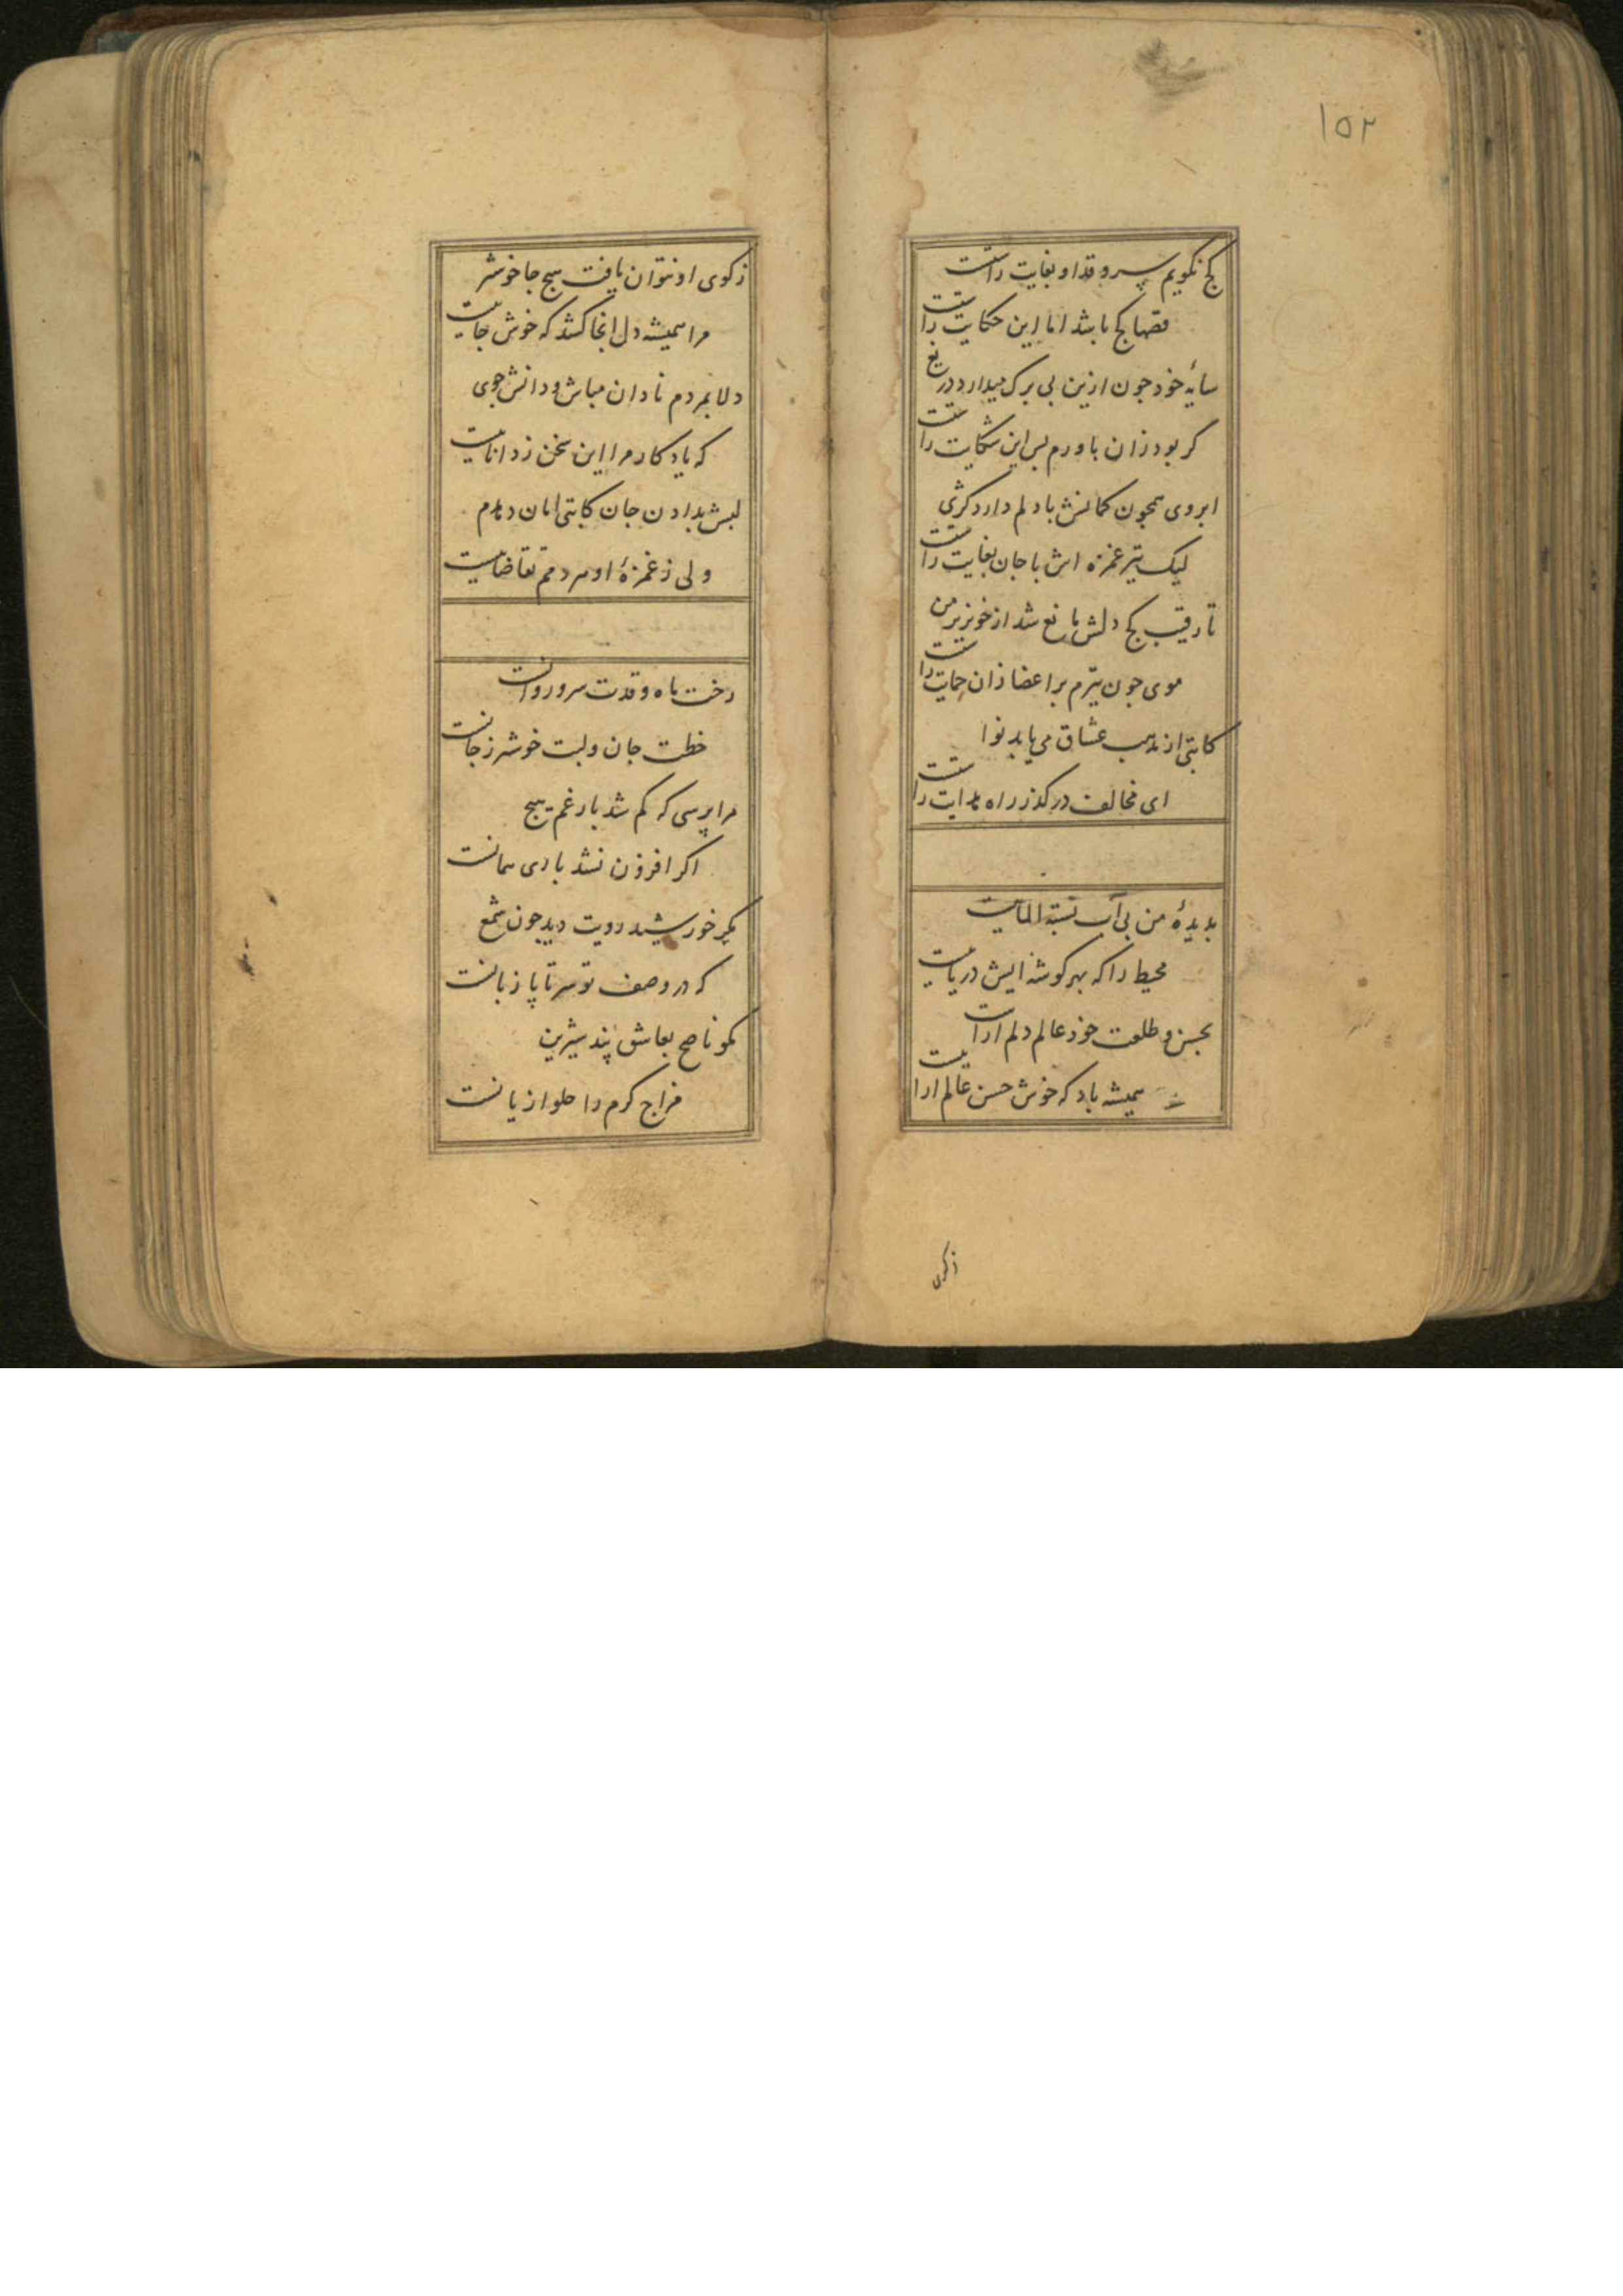 ۱۵۲
کج نکویم سرو قد او بغایت راستست
قصها کج باشد اما این حکایت راستست
سایهٔ خود جون ازین بی برک میدارد دریغ
کر بود زان باورم بس این شکایت راستست
ابروی همجون کمانش با دلم دارد کژی
لیک تیر غمزه اش با جان بغایت راستست
تا رقیب کج دلش مانع شد از خونریز من
موی جون تیرم بر اعضا زان حمایت راستست
کاتبی از مذهب عشاق می یابد نوا
ای مخالف در کذر راه هدایت راستست
بدیدهٔ من بی آب تشنه الماییست
محیط را که بهر کوشه ایش دریاییست
بحسن و طلعت خود عالم دلم اراست
همیشه باد که خوش حسن عالم اراییست
زکوی
زکوی او نتوان یافت هیج جا خوشتر
مرا همیشه دل انجا کشد که خوش جاییست
دلا بمردم نادان مباش و دانش جوی
که یادکار مرا این سخن ز داناییست
لبش بدادن جان کاتبی امان دهدم
ولی ز غمزهٔ او هر دمم تقاضاییست
رخت ماه و قدت سرو روانست
خطت جان و لبت خوشتر ز جانست
مرا پرسی که کم شد بار غم هیج
اکر افزون نشد باری همانست
مکر خورشید رویت دید جون شمع
که در وصف تو سر تا پا زبانست
مکو ناصح بعاشق پند شیرین
مزاج کرم را حلوا زیانست